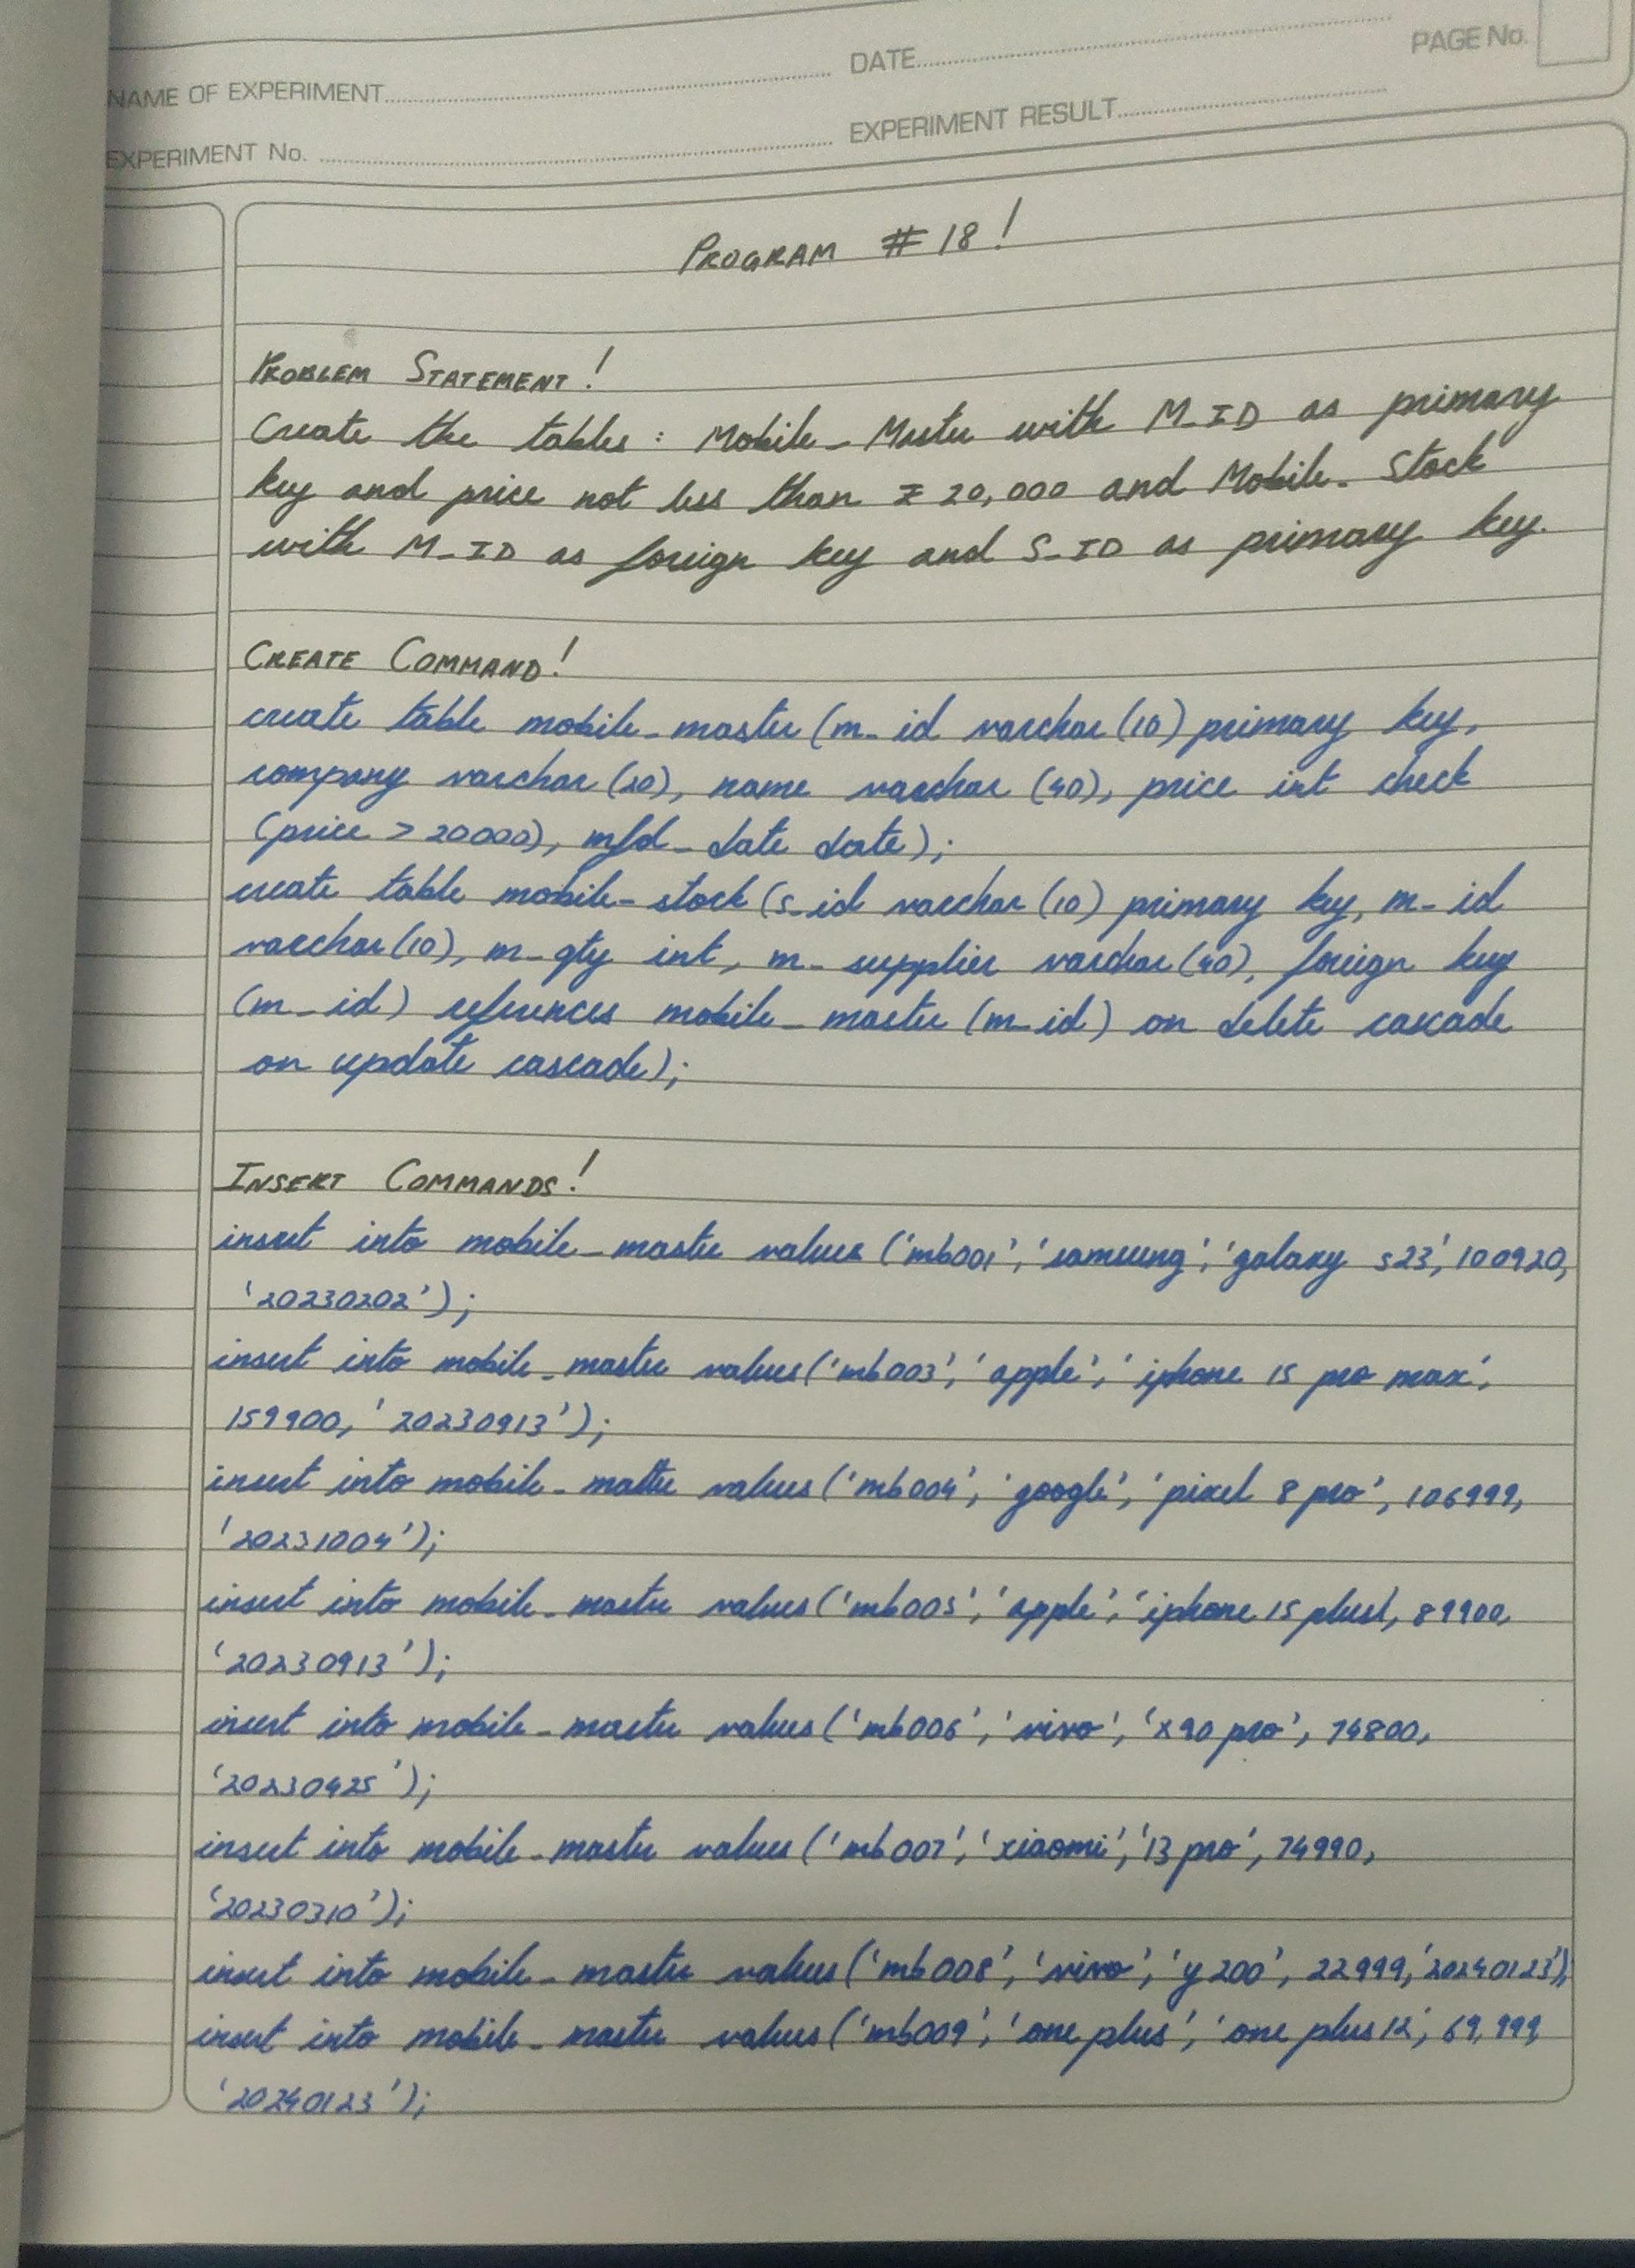 NAME OF EXPERIMENT
DATE
PAGE No.
EXPERIMENT No.
EXPERIMENT RESULT
PROGRAM #18!
PROBLEM STATEMENT!
Create the tables: Mobile_Master with M_ID as primary
key and price not less than ₹ 20,000 and Mobile_Stock
with M_ID as foreign key and S_ID as primary key.
CREATE COMMAND!
create table mobile_master (m_id varchar(10) primary key,
company varchar(20), name varchar(40), price int check
(price > 20000), mfd_date date);
create table mobile_stock (s_id varchar(10) primary key, m_id
varchar(10), m_qty int, m_supplier varchar(40), foreign key
(m_id) references mobile_master (m_id) on delete cascade
on update cascade);
INSERT COMMANDS!
insert into mobile_master values ('mb001', 'samsung', 'galaxy s23', 100920,
'20230202');
insert into mobile_master values('mb003', 'apple', 'iphone 15 pro max',
159900, '20230913');
insert into mobile_master values('mb004', 'google', 'pixel 8 pro', 106999,
'20231004');
insert into mobile_master values('mb005', 'apple', 'iphone 15 plus', 89900,
'20230913');
insert into mobile_master values('mb006', 'vivo', 'x90 pro', 74800,
'20230425');
insert into mobile_master values('mb007', 'xiaomi', '13 pro', 74990,
'20230310');
insert into mobile_master values('mb008', 'vivo', 'y200', 22999, '20240123');
insert into mobile_master values('mb009', 'one plus', 'one plus 12', 69,999,
'20240123');